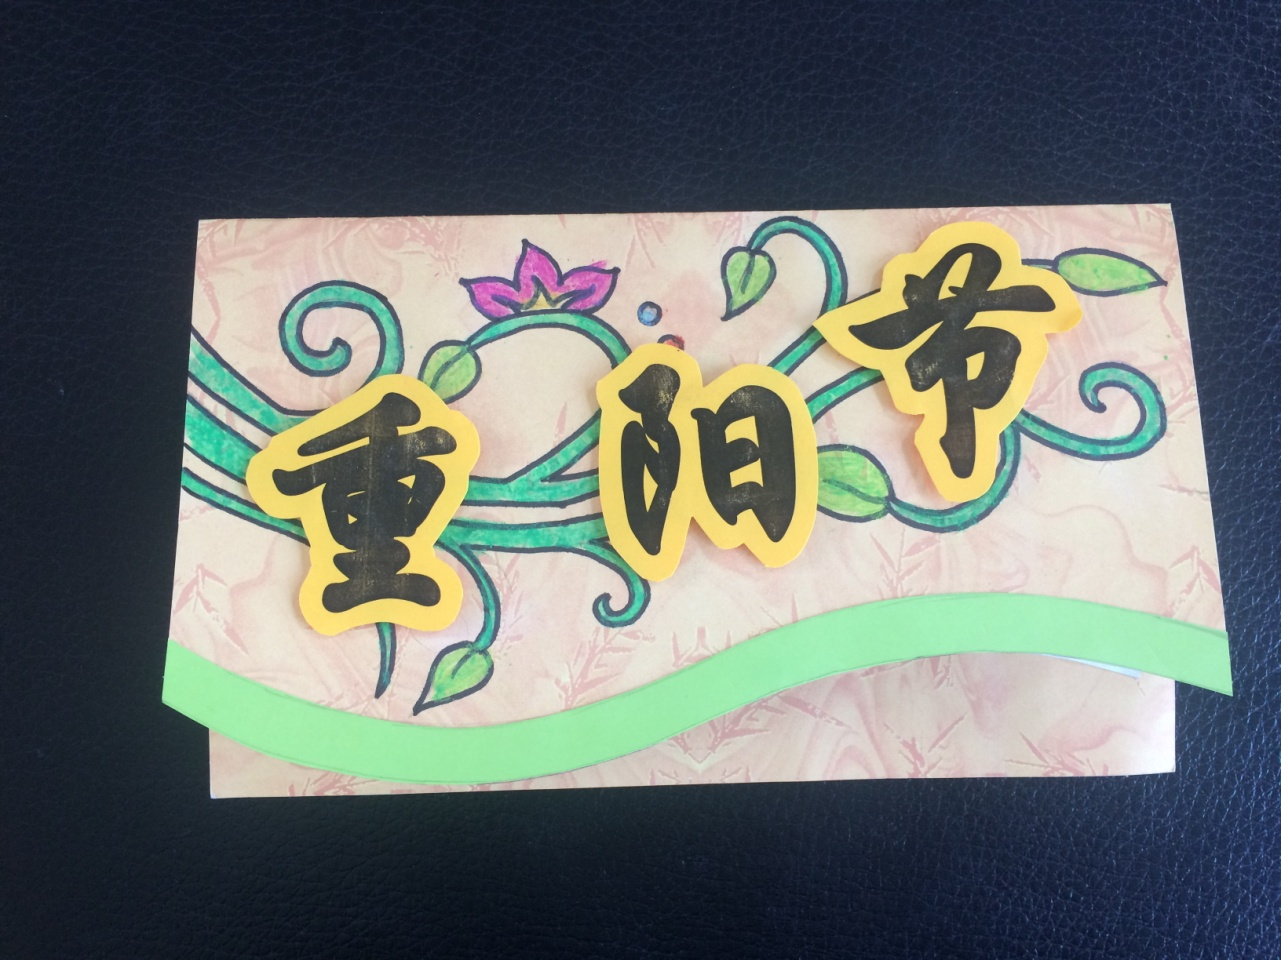 重阳节